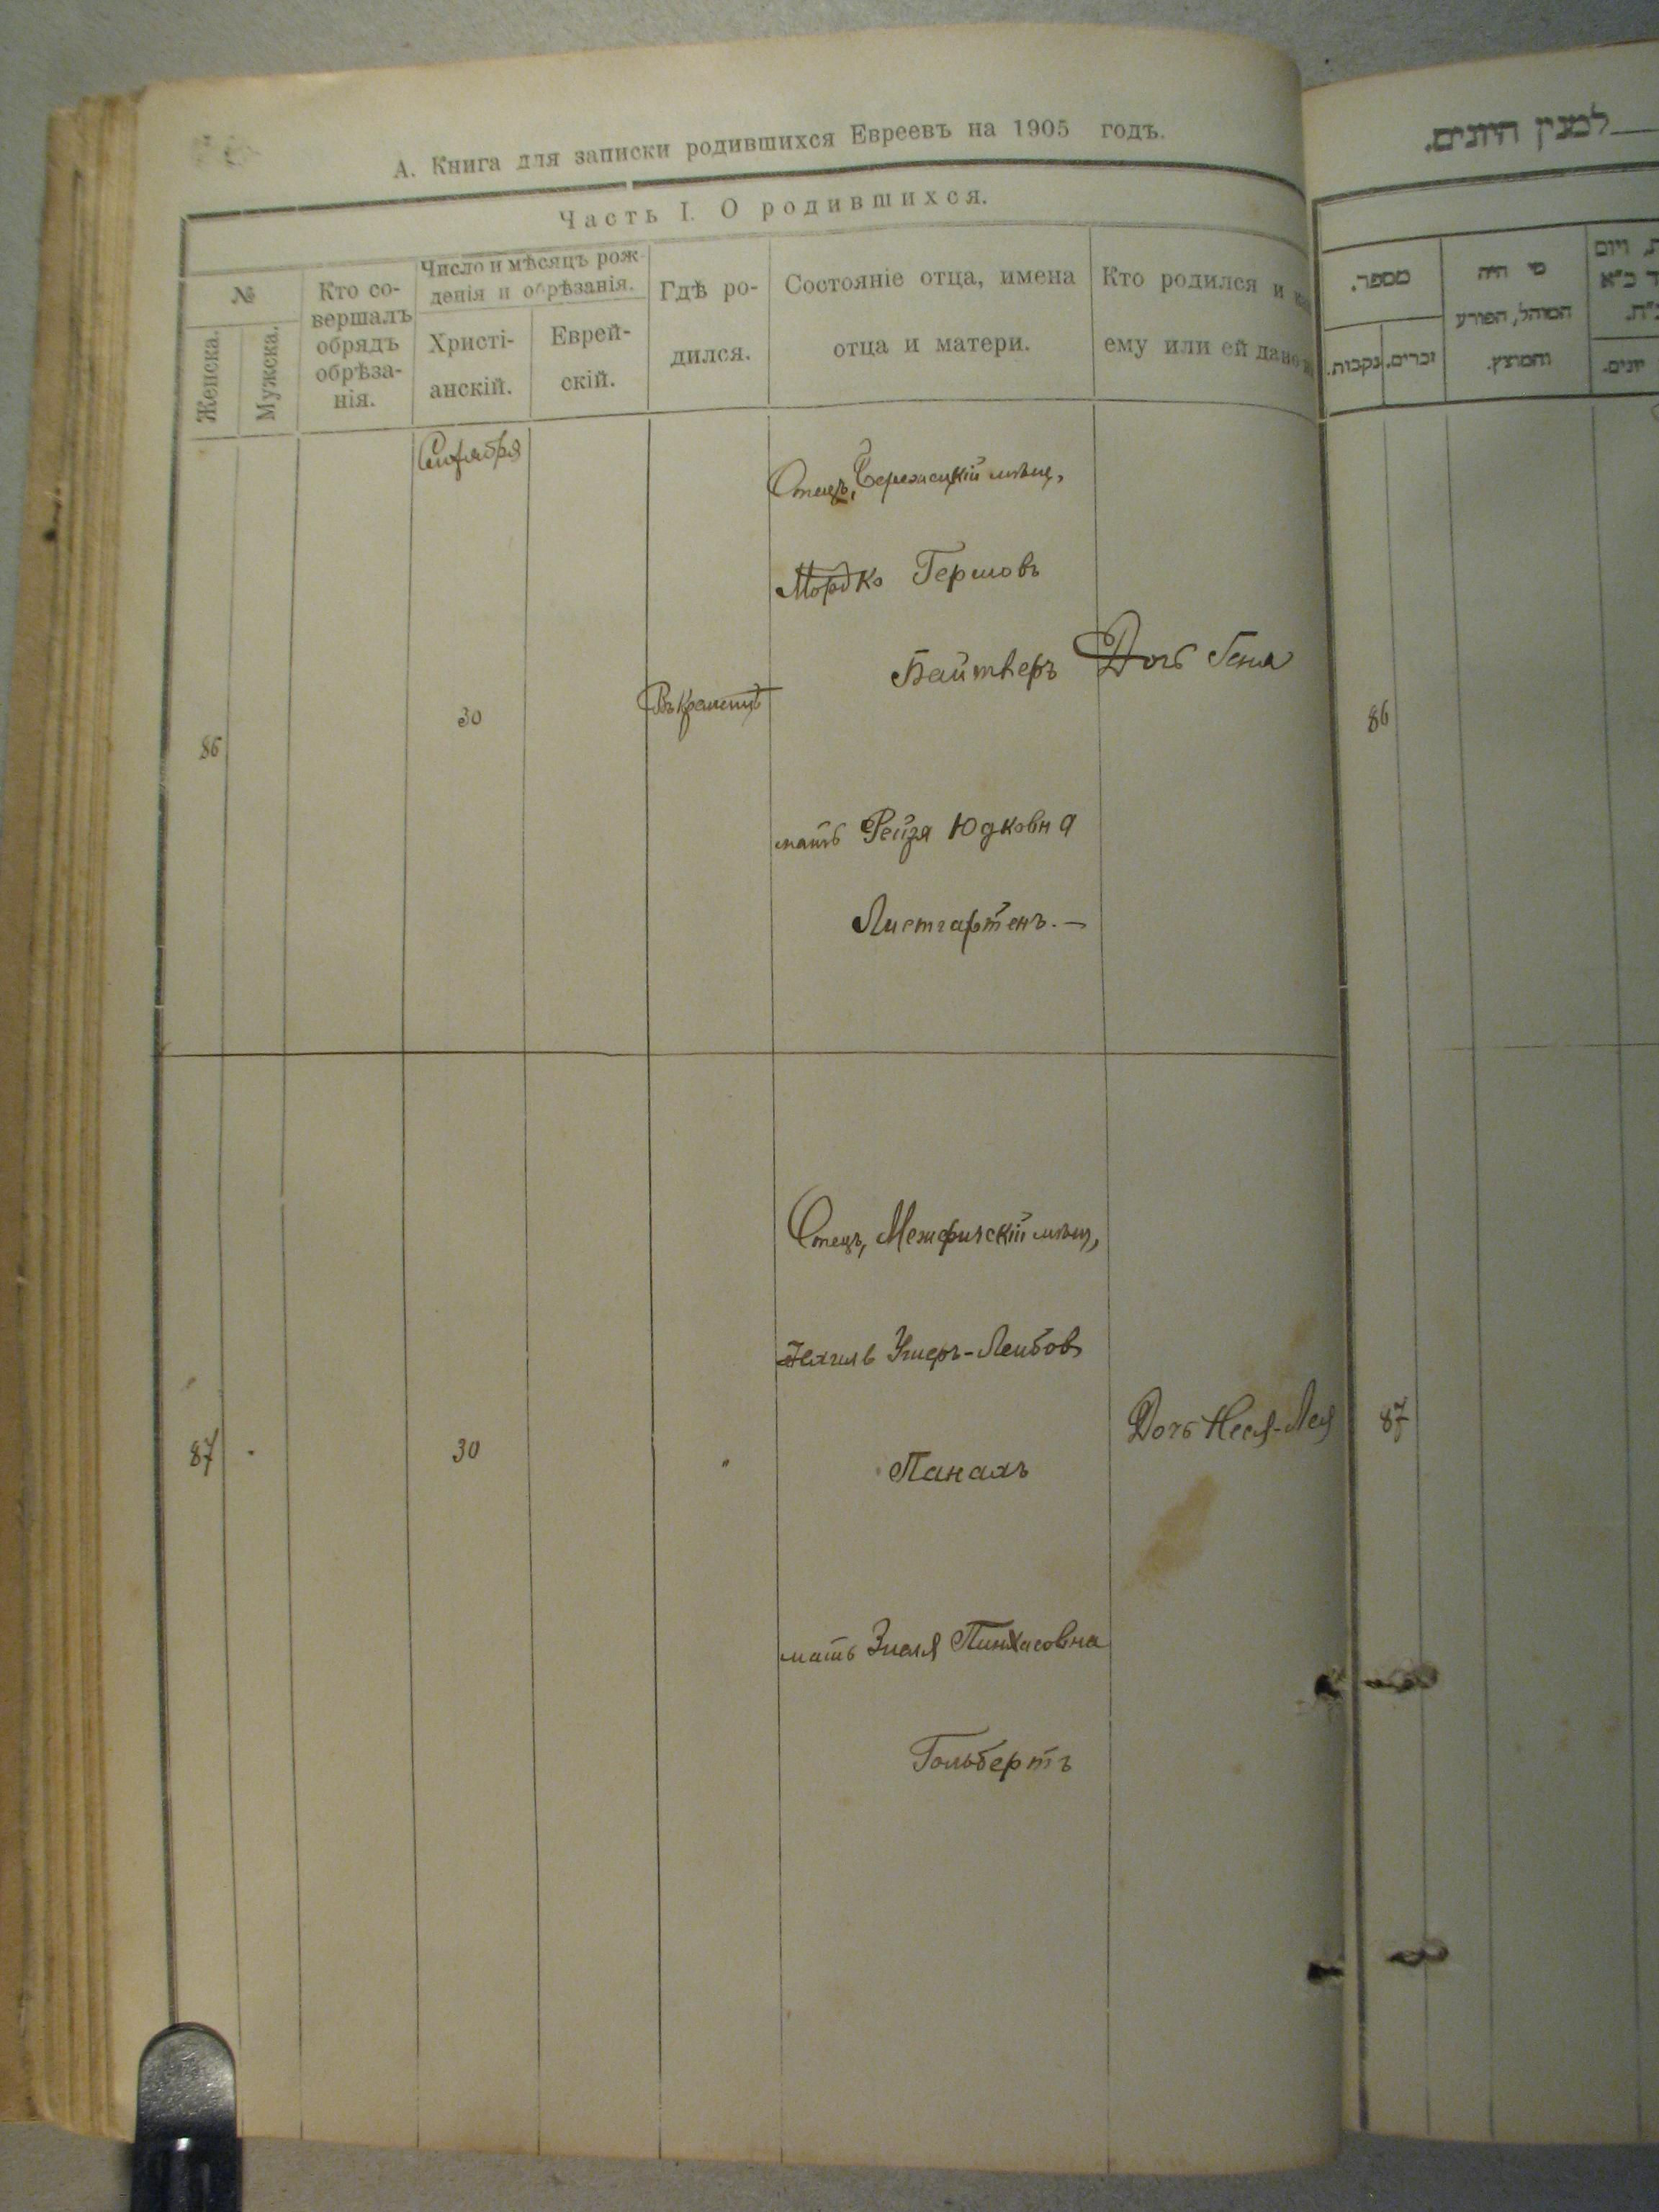 А. Книга для записки родившихся Евреевъ на 1905 годъ.
Часть I. О родившихся.
№
Женска.
Мужска.
Кто со-
вершалъ
обрядъ
обрѣза-
нія.
Число и мѣсяцъ рож-
денія и обрѣзанія.
Христі-
анскій.
Еврей-
скій.
Гдѣ ро-
дился.
Состояніе отца, имена
отца и матери.
Кто родился и
ему или ей дано
Сентября
86
30
Въ Кременцѣ
Отецъ,
мѣщ,
Мордко Гершовъ
Байтлеръ
мать Рейзя Юдковна
Листгартенъ. —
Дочь Геня
87
30
"
Отецъ, Межиричскій мѣщ,
Ушеръ-Лейбовъ
мать Пинхасовна
Гольбертъ
Дочь Неся-Лея
למנין היונים.
מספר.
נקבות.
זכרים.
מי היה
המוהל, הפורע
והמוצץ.
ויום
יונים.
86
87